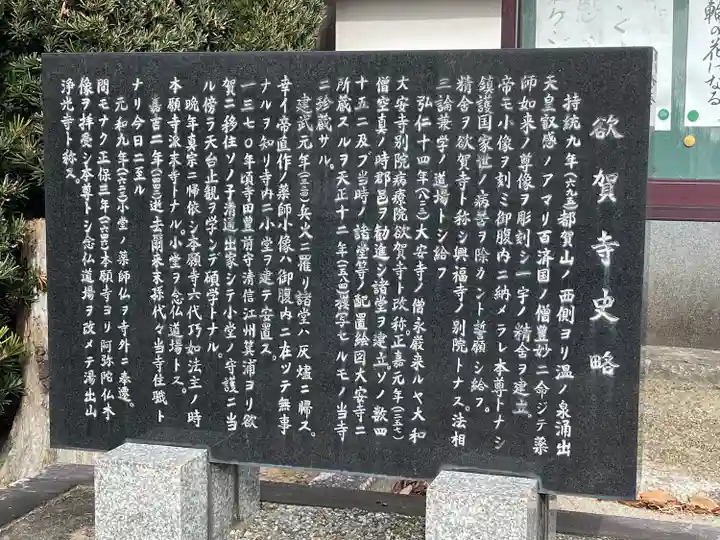 欲賀寺史略
持統九年(六九五)都賀山ノ西側ヨリ温ノ泉涌出
天皇叡感ノアマリ百済国ノ僧豊妙ニ命ジテ薬
師如来ノ尊像ヲ彫刻シ一宇ノ精舎ヲ建立。
帝モ小像ヲ刻ミ御腹内ニ納メラレ本尊トナシ
鎮護国家世ノ病苦ヲ除カント誓願シ給フ。
精舎ヲ欲賀寺ト称シ興福寺ノ別院トナス。法相
三論兼学ノ道場トシ給フ
弘仁十四年(八二三)大安寺ノ僧永厳来ルヤ大和
大安寺別院病療院欲賀寺ト改称。正嘉元年(一二五七)
僧空真ノ時郡邑ヲ勧進シ諸堂ヲ建立。ソノ数四
十五ニ及ブ当時ノ諸堂等ノ配置絵図大安寺ニ
所蔵スルヲ天正十二年(一五八四)複写セルモノ当寺
ニ珍蔵サル。
建武元年(一三三四)兵火ニ罹リ諸堂ハ灰燼ニ帰ス。
幸イ帝直作ノ薬師小像ハ御腹内ニ在ツテ無事
ナルヲ知リ寺内ニ小堂ヲ建テ安置ス。
一三七〇年頃寺田豊前守清信江州箕浦ヨリ欲
賀ニ移住ソノ子清道出家シテ小堂ノ守護ニ当
ル傍ラ天台止観ヲ学ンデ碩学トナル。
晩年真宗ニ帰依シ本願寺六代巧如法主ノ時
本願寺派末寺トナル小堂ヲ念仏道場トス。
嘉吉二年(一四四二)逝去爾来末孫代々当寺住職ト
ナリ今日ニ至ル
元和九年(一六二三)小堂ノ薬師仏ヲ寺外ニ奉遷。
間モナク正保三年(一六四六)本願寺ヨリ阿弥陀仏木
像ヲ拝受シ本尊トシ念仏道場ヲ改メテ湯出山
浄光寺ト称ス。